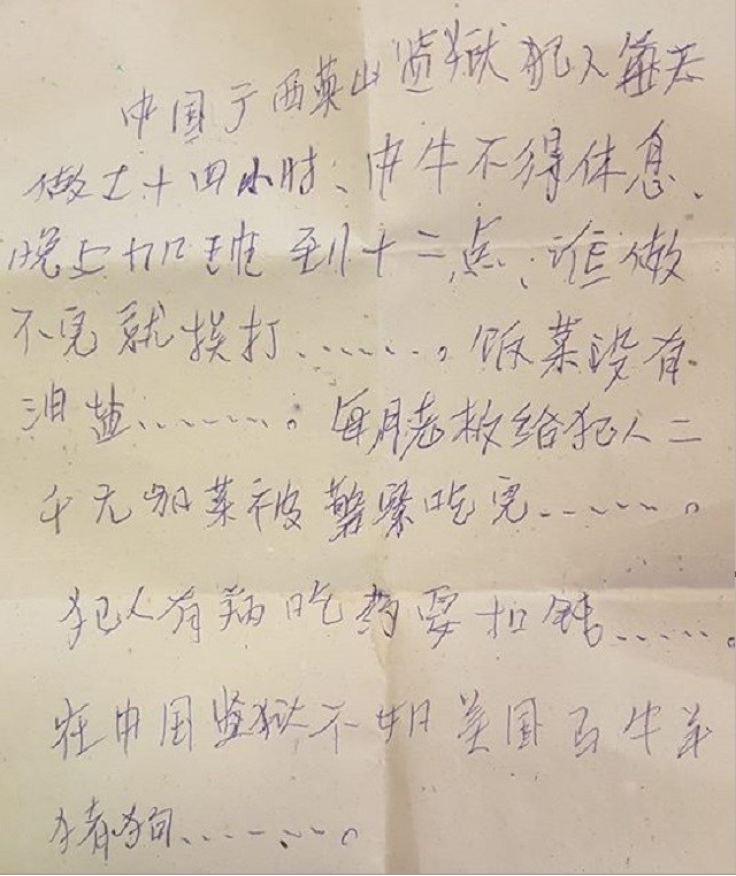 中国广西英山监狱犯人每天
做工十四小时、中午不得休息、
晚上加班到十二点、谁做
不完就挨打………。饭菜没有
油盐………。每月老板给犯人二
千元加菜被警察吃完………。
犯人有病吃药要扣钱……。
在中国监狱不如美国马牛羊
猪狗………。